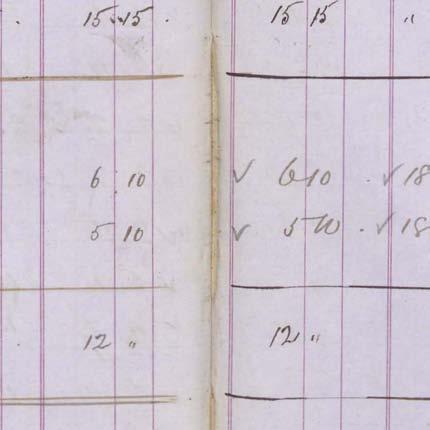 . 15 15 . 15 15 "
6 10 ✓ 6 10 . ✓ 18
5 10 ✓ 5 10 . ✓ 18
. 12 " 12 "